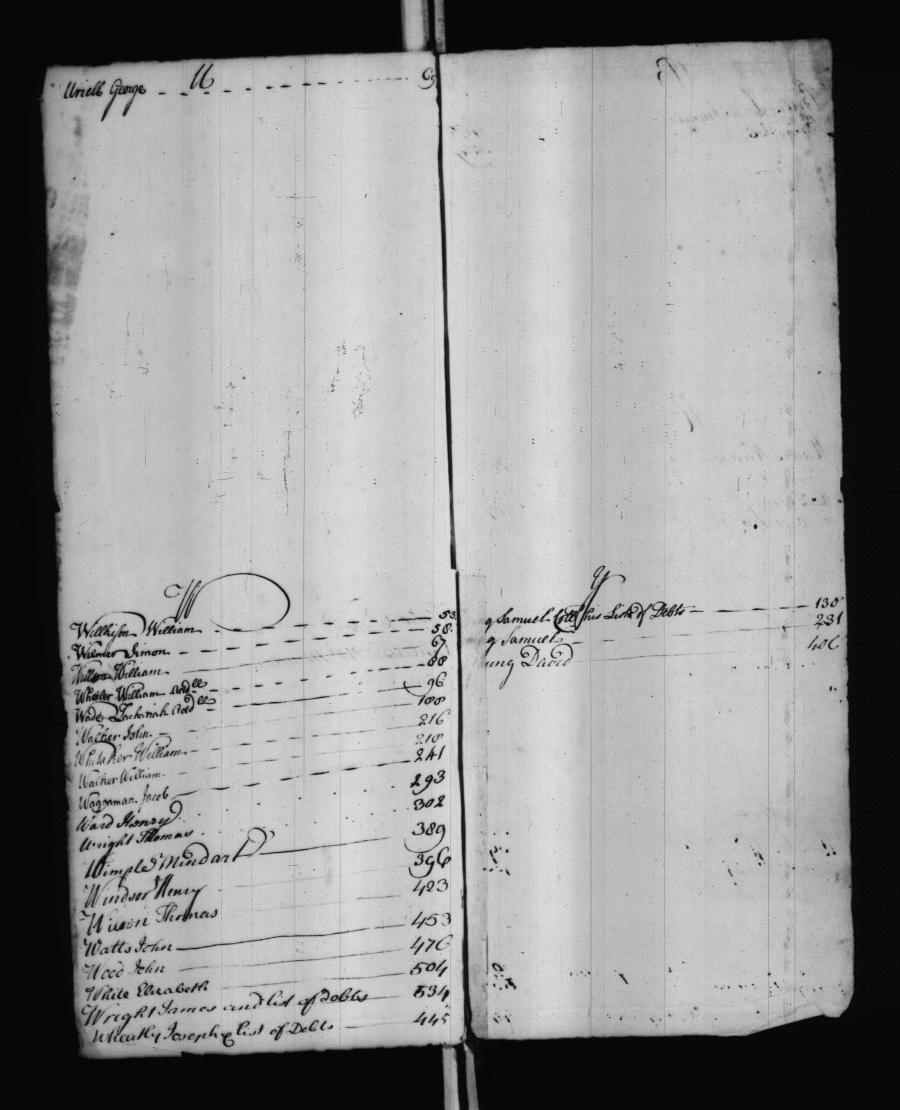 U
Uriell George
W
Willkison William 53
Wilmer Simon 58
Willson William 67
Wheeler William 88
Wade Zachariah 96
Walker John 108
Whitaker William 216
Walker William 218
Waggaman Jacob 241
Ward Henry 293
Wright Thomas 302
Wimple Mindart 389
Windsor Henry 396
Thomas 423
Watts John 453
Wood John 476
White Elizabeth 504
Wright James and list of Debts 534
Wheatly Joseph & list of Debts 445
Y
g Samuel his List of Debts 138
g Samuel 231
ung David 406